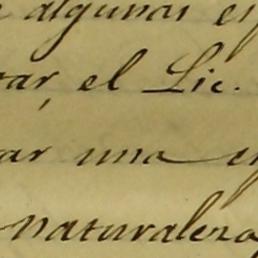 algunas
tar, el Lic.
ar una
naturaleza